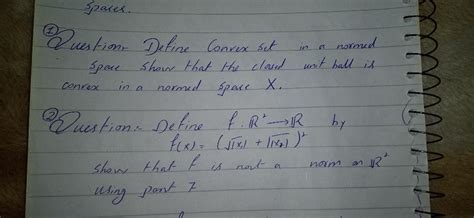 Spaces.
① Question:- Define Convex set in a normed
space show that the closed unit ball is
convex in a normed space X.
② Question:- Define f: ℝ² → ℝ by
f(x) = (√|x₁| + √|x₂|)²
show that f is not a norm on ℝ²
using part 7